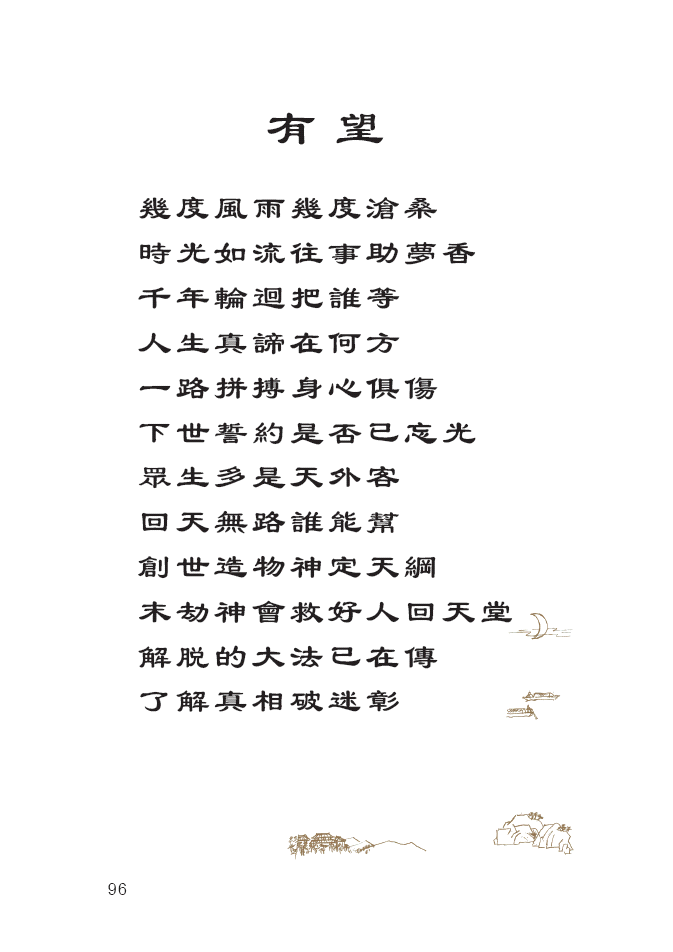 有望
幾度風雨幾度滄桑
時光如流往事助夢香
千年輪迴把誰等
人生真諦在何方
一路拼搏身心俱傷
下世誓約是否已忘光
眾生多是天外客
回天無路誰能幫
創世造物神定天綱
末劫神會救好人回天堂
解脫的大法已在傳
了解真相破迷彰
96